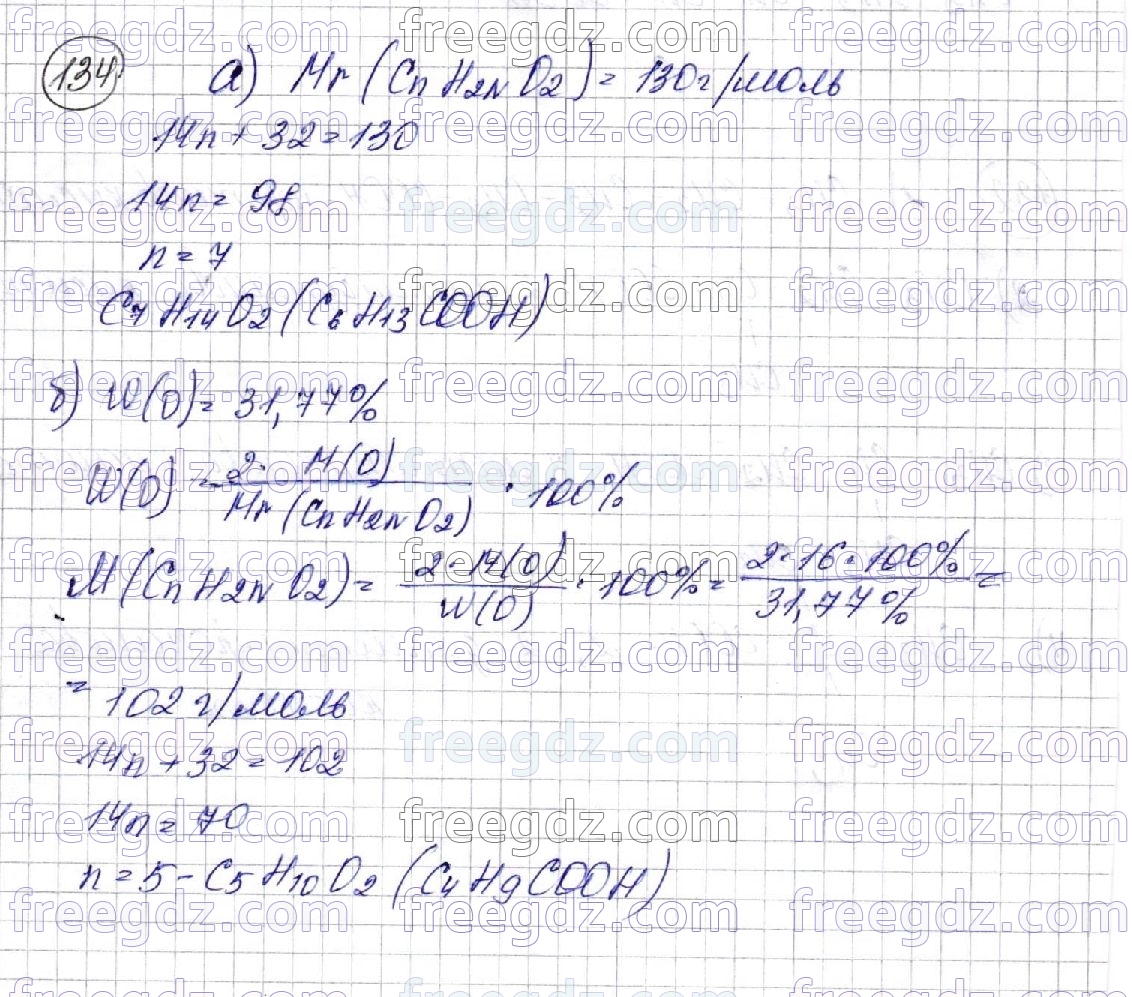 134. а) Mr (CnH2nO2) = 130 г/моль
14n + 32 = 130
14n = 98
n = 7
C7H14O2 (C6H13COOH)
б) W(O) = 31,77%
W(O) = 2 · M(O) / Mr (CnH2nO2) · 100%
M (CnH2nO2) = 2 · M(O) / W(O) · 100% = 2 · 16 · 100% / 31,77% =
= 102 г/моль
14n + 32 = 102
14n = 70
n = 5 – C5H10O2 (C4H9COOH)
freegdz.com